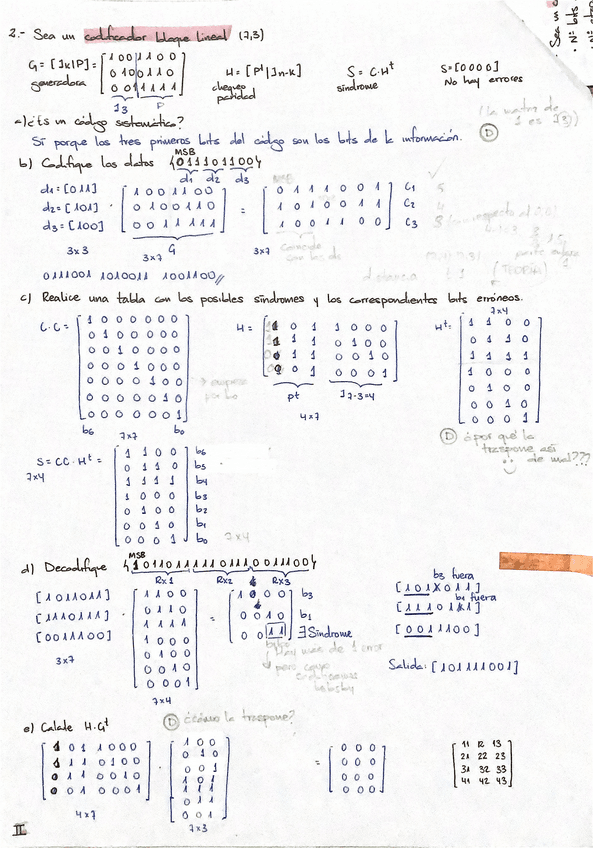 2.- Sea un codificador bloque lineal (7,3)
G = [Ik|P] = [1 0 0 1 1 0 0
0 1 0 0 1 1 0
0 0 1 1 1 1 1]
generadora
I3 P
H = [Pt|In-k]
chequeo paridad
S = C·Ht
síndrome
S=[0000]
No hay errores
a) ¿Es un código sistemático?
(la matriz de 1 es I3)
Sí porque los tres primeros bits del código son los bits de la información. D
MSB
b) Codifique los datos {011101100}
d1 d2 d3
d1 = [011]
d2 = [101]
d3 = [100]
3x3
· [1 0 0 1 1 0 0
0 1 0 0 1 1 0
0 0 1 1 1 1 1]
G
3x7
= [0 1 1 1 0 0 1] C1
[1 0 1 0 0 1 1] C2
[1 0 0 1 1 0 0] C3
3x7
0111001 1010011 1001100//
distancia
(TEORÍA)
c) Realice una tabla con los posibles síndromes y los correspondientes bits erróneos.
C·C = [1 0 0 0 0 0 0
0 1 0 0 0 0 0
0 0 1 0 0 0 0
0 0 0 1 0 0 0
0 0 0 0 1 0 0
0 0 0 0 0 1 0
0 0 0 0 0 0 1]
b6 b0
7x7
H = [1 0 1 1 0 0 0
1 1 1 0 1 0 0
0 1 1 0 0 1 0
0 0 1 0 0 0 1]
Pt I7-3=4
4x7
7x4
Ht = [1 1 0 0
0 1 1 0
1 1 1 1
1 0 0 0
0 1 0 0
0 0 1 0
0 0 0 1]
D ¿por qué la traspone así de mal???
S = CC · Ht =
7x4
[1 1 0 0] b6
[0 1 1 0] b5
[1 1 1 1] b4
[1 0 0 0] b3
[0 1 0 0] b2
[0 0 1 0] b1
[0 0 0 1] b0
7x4
MSB
d) Decodifique {101101111101110011100}
Rx1 Rx2 Rx3
[1011011]
[1110111]
[0011100]
3x7
· [1 1 0 0
0 1 1 0
1 1 1 1
1 0 0 0
0 1 0 0
0 0 1 0
0 0 0 1]
7x4
= [1 0 0 0] b3
[0 0 1 0] b1
[0 0 1 1] ∄ Síndrome
Hay más de 1 error
b3 fuera
[1011011]
b1 fuera
[1110111]
[0011100]
Salida: [101111001]
e) Calcule H·Gt
D ¿cómo la traspone?
[1 0 1 1 0 0 0
1 1 1 0 1 0 0
0 1 1 0 0 1 0
0 0 1 0 0 0 1]
4x7
· [1 0 0
0 1 0
0 0 1
1 0 1
1 1 1
0 1 1
0 0 1]
7x3
= [0 0 0
0 0 0
0 0 0
0 0 0]
[11 12 13
21 22 23
31 32 33
41 42 43]
II